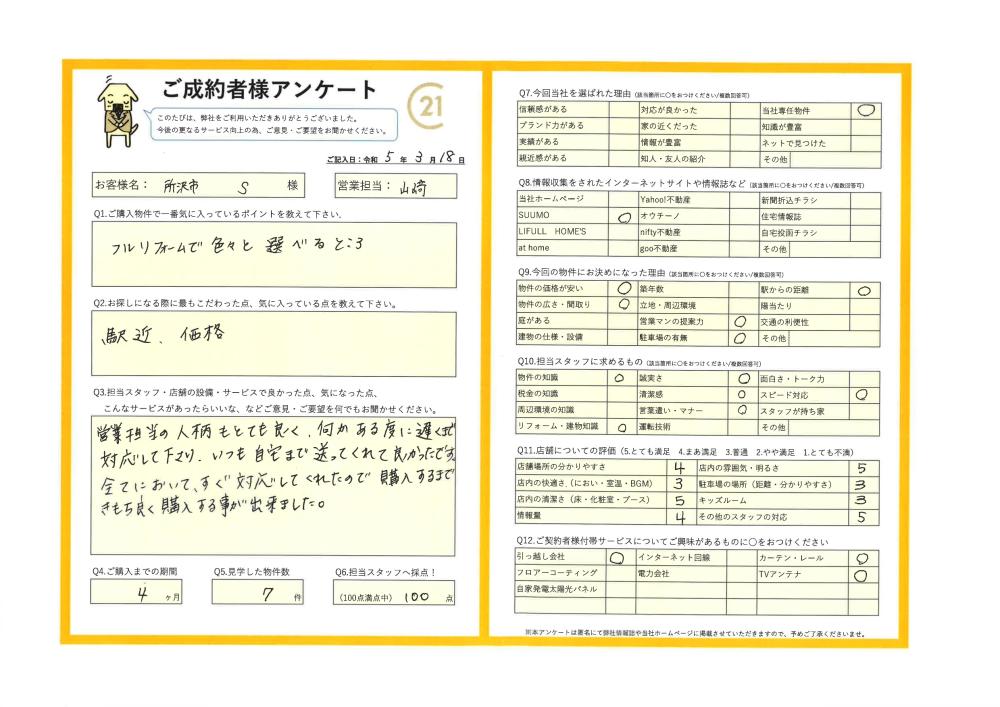 ご成約者様アンケート
21
このたびは、弊社をご利用いただきありがとうございました。
今後の更なるサービス向上の為、ご意見・ご要望をお聞かせください。
ご記入日：令和 5 年 3 月 18 日
お客様名： 所沢市 S 様
営業担当： 山﨑
Q1.ご購入物件で一番気に入っているポイントを教えて下さい。
フルリフォームで色々と選べるところ
Q2.お探しになる際に最もこだわった点、気に入っている点を教えて下さい。
駅近、価格
Q3.担当スタッフ・店舗の設備・サービスで良かった点、気になった点、
こんなサービスがあったらいいな、などご意見・ご要望を何でもお聞かせください。
営業担当の人柄もとても良く、何かある度に遅くまで
対応して下さり、いつも自宅まで送ってくれて良かったです。
全てにおいて、すぐ対応してくれたので購入するまで
きもち良く購入する事が出来ました。
Q4.ご購入までの期間
4 ヶ月
Q5.見学した物件数
7 件
Q6.担当スタッフへ採点！
(100点満点中) 100 点
Q7.今回当社を選ばれた理由 (該当箇所に○をおつけください/複数回答可)
信頼感がある 対応が良かった 当社専任物件 ○
ブランド力がある 家の近くだった 知識が豊富
実績がある 情報が豊富 ネットで見つけた
親近感がある 知人・友人の紹介 その他
Q8.情報収集をされたインターネットサイトや情報誌など (該当箇所に○をおつけください/複数回答可)
当社ホームページ Yahoo!不動産 新聞折込チラシ
SUUMO ○ オウチーノ 住宅情報誌
LIFULL HOME'S nifty不動産 自宅投函チラシ
at home goo不動産 その他
Q9.今回の物件にお決めになった理由 (該当箇所に○をおつけください/複数回答可)
物件の価格が安い ○ 築年数 駅からの距離 ○
物件の広さ・間取り ○ 立地・周辺環境 陽当たり
庭がある 営業マンの提案力 ○ 交通の利便性
建物の仕様・設備 駐車場の有無 ○ その他
Q10.担当スタッフに求めるもの (該当箇所に○をおつけください/複数回答可)
物件の知識 ○ 誠実さ ○ 面白さ・トーク力
税金の知識 清潔感 ○ スピード対応 ○
周辺環境の知識 言葉遣い・マナー ○ スタッフが持ち家
リフォーム・建物知識 ○ 運転技術 その他
Q11.店舗についての評価 (5.とても満足 4.まあ満足 3.普通 2.やや満足 1.とても不満)
店舗場所の分かりやすさ 4 店内の雰囲気・明るさ 5
店内の快適さ(におい・室温・BGM) 3 駐車場の場所（距離・分かりやすさ） 3
店内の清潔さ（床・化粧室・ブース） 5 キッズルーム 3
情報量 4 その他のスタッフの対応 5
Q12.ご契約者様付帯サービスについてご興味があるものに○をおつけください
引っ越し会社 ○ インターネット回線 カーテン・レール ○
フロアーコーティング 電力会社 TVアンテナ ○
自家発電太陽光パネル
※本アンケートは匿名にて弊社情報誌や当社ホームページに掲載させていただきますので、予めご了承くださいませ。